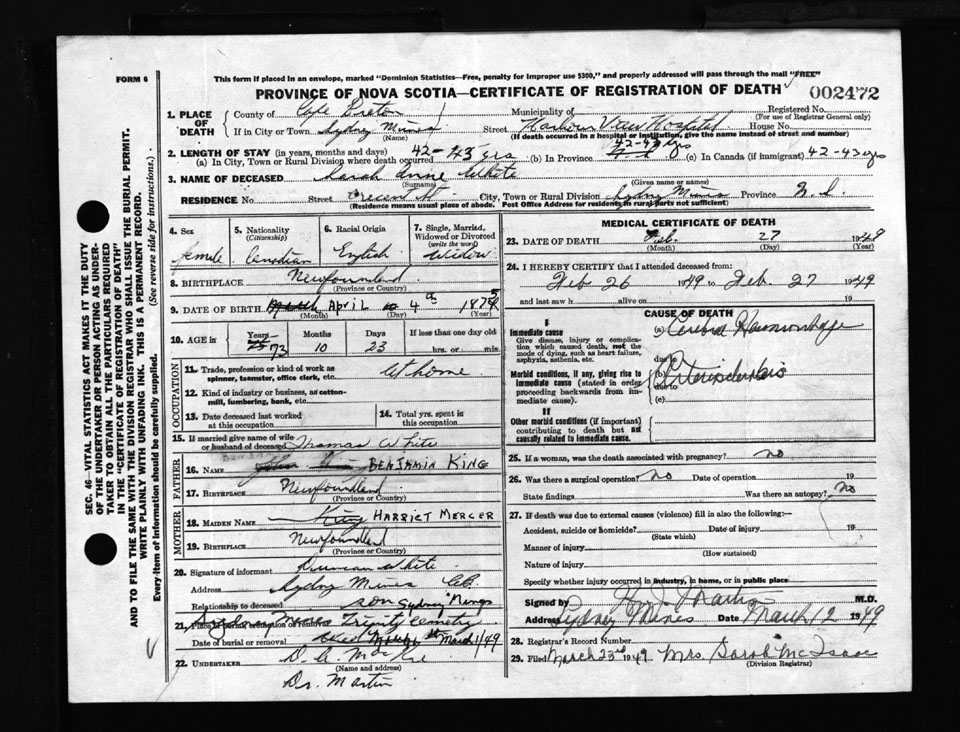 FORM 6
This form if placed in an envelope, marked "Dominion Statistics—Free, penalty for improper use $300," and properly addressed will pass through the mail "FREE"
PROVINCE OF NOVA SCOTIA—CERTIFICATE OF REGISTRATION OF DEATH
002472
1. PLACE OF DEATH
County of Cape Breton Municipality of Registered No.
(For use of Registrar General only)
If in City or Town Sydney Mines Street Harbour View Hospital House No.
(Name) (If death occurred in a hospital or institution, give the name instead of street and number)
2. LENGTH OF STAY (in years, months and days)
(a) In City, Town or Rural Division where death occurred 42-43 yrs (b) In Province 42-43 yrs (c) In Canada (if immigrant) 42-43 yrs
3. NAME OF DECEASED Sarah Anne White
(Surname) (Given name or names)
RESIDENCE No. Street Crescent St City, Town or Rural Division Sydney Mines Province N.S.
(Residence means usual place of abode. Post Office Address for residents in rural parts not sufficient)
4. Sex
female
5. Nationality
(Citizenship)
Canadian
6. Racial Origin
English
7. Single, Married, Widowed or Divorced
(write the word)
Widow
8. BIRTHPLACE Newfoundland
(Province or Country)
9. DATE OF BIRTH April 4th 1875
(Month) (Day) (Year)
10. AGE is Years Months Days If less than one day old
73 10 23 hrs. or min.
OCCUPATION
11. Trade, profession or kind of work as spinner, teamster, office clerk, etc. At home
12. Kind of industry or business, as cotton-mill, lumbering, bank, etc.
13. Date deceased last worked at this occupation
14. Total yrs. spent in this occupation
15. If married give name of wife or husband of deceased Thomas White
FATHER
16. NAME BENJAMIN KING
17. BIRTHPLACE Newfoundland
(Province or Country)
MOTHER
18. MAIDEN NAME King HARRIET MERCER
19. BIRTHPLACE Newfoundland
(Province or Country)
20. Signature of informant Duncan White
Address Sydney Mines C.B.
Relationship to deceased son Sydney Mines
21. Place of burial, cremation or removal Trinity Cemetry
Date of burial or removal March 1/49
22. UNDERTAKER
(Name and address)
Dr. Martin
MEDICAL CERTIFICATE OF DEATH
23. DATE OF DEATH Feb. 27 1949
(Month) (Day) (Year)
24. I HEREBY CERTIFY that I attended deceased from:
Feb 26 1949 to Feb. 27 1949
and last saw h alive on 19
CAUSE OF DEATH
I
Immediate cause
Give disease, injury or complication which caused death, not the mode of dying, such as heart failure, asphyxia, asthenia, etc.
(a) Cerebral Hemorrhage
due to
Morbid conditions, if any, giving rise to immediate cause (stated in order proceeding backwards from immediate cause).
(b) Arteriosclerosis
due to
(c)
II
Other morbid conditions (if important) contributing to death but not causally related to immediate cause.
25. If a woman, was the death associated with pregnancy? no
26. Was there a surgical operation? no Date of operation 19
State findings Was there an autopsy? no
27. If death was due to external causes (violence) fill in also the following:
Accident, suicide or homicide? Date of injury 19
(State which)
Manner of injury
(How sustained)
Nature of injury
Specify whether injury occurred in industry, in home, or in public place
Signed by Martin M.D.
Address Sydney Mines Date March 12 1949
28. Registrar's Record Number
29. Filed March 23rd 1949 Mrs. Sarah McIsaac
(Division Registrar)
SEC. 46—VITAL STATISTICS ACT MAKES IT THE DUTY
OF THE UNDERTAKER OR PERSON ACTING AS UNDER-
TAKER TO OBTAIN ALL THE PARTICULARS REQUIRED
IN THE "CERTIFICATE OF REGISTRATION OF DEATH"
AND TO FILE THE SAME WITH THE DIVISION REGISTRAR WHO SHALL ISSUE THE BURIAL PERMIT.
WRITE PLAINLY WITH UNFADING INK. THIS IS A PERMANENT RECORD.
Every item of information should be carefully supplied. (See reverse side for instructions.)